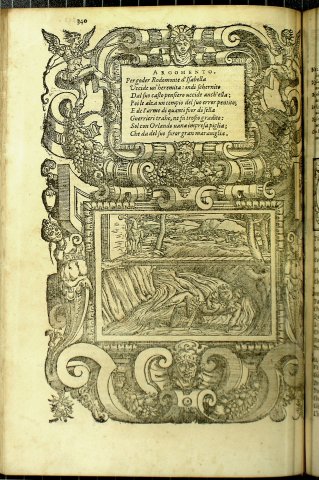 340
ARGOMENTO.
Per goder Rodomonte d'Isabella
Uccide un'heremita: onde schernito
Dal suo casto pensiero uccide anch'ella;
Poi le alza un tempio del suo error pentito;
E de l'arme di quanti fuor di sella
Guerrieri trahe, ne fa trofeo gradito:
Sol con Orlando vana impresa piglia;
Che dà del suo furor gran maraviglia.